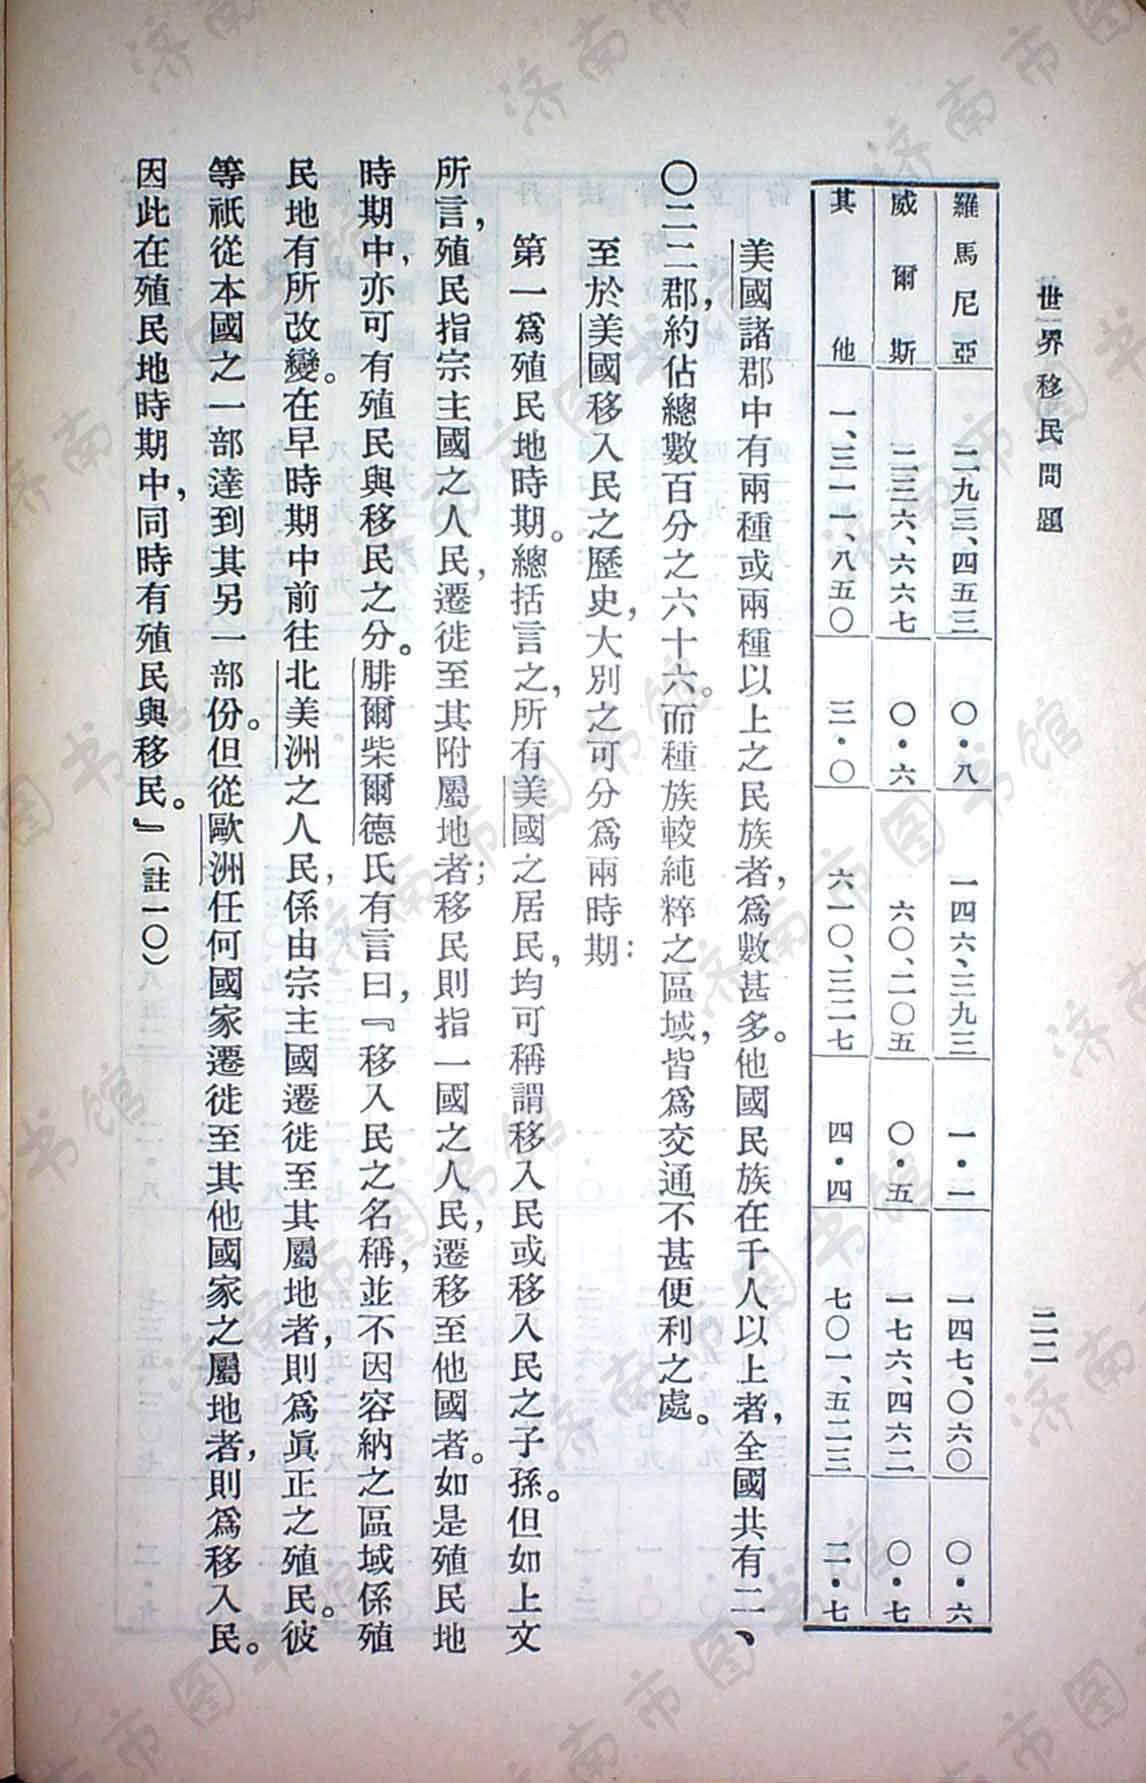 世界移民問題
二二
羅馬尼亞 二九三、四五三 〇·八 一四六、三九三 一·一 一四七、〇六〇 〇·六
威爾斯 二三六、六六七 〇·六 六〇、二〇五 〇·五 一七六、四六二 〇·七
其他 一、三一一、八五〇 三·〇 六一〇、三二七 四·四 七〇一、五二三 二·七
美國諸郡中有兩種或兩種以上之民族者，爲數甚多。他國民族在千人以上者，全國共有二、
〇二二郡，約佔總數百分之六十六。而種族較純粹之區域，皆爲交通不甚便利之處。
至於美國移入民之歷史，大別之可分爲兩時期：
第一爲殖民地時期。總括言之，所有美國之居民，均可稱謂移入民或移入民之子孫。但如上文
所言，殖民指宗主國之人民，遷徙至其附屬地者；移民則指一國之人民，遷移至他國者。如是殖民地
時期中，亦可有殖民與移民之分。腓爾柴爾德氏有言曰，『移入民之名稱，並不因容納之區域係殖
民地有所改變。在早時期中前往北美洲之人民，係由宗主國遷徙至其屬地者，則爲眞正之殖民。彼
等祇從本國之一部達到其另一部份。但從歐洲任何國家遷徙至其他國家之屬地者，則爲移入民。
因此在殖民地時期中，同時有殖民與移民。』（註一〇）
济南市图书馆